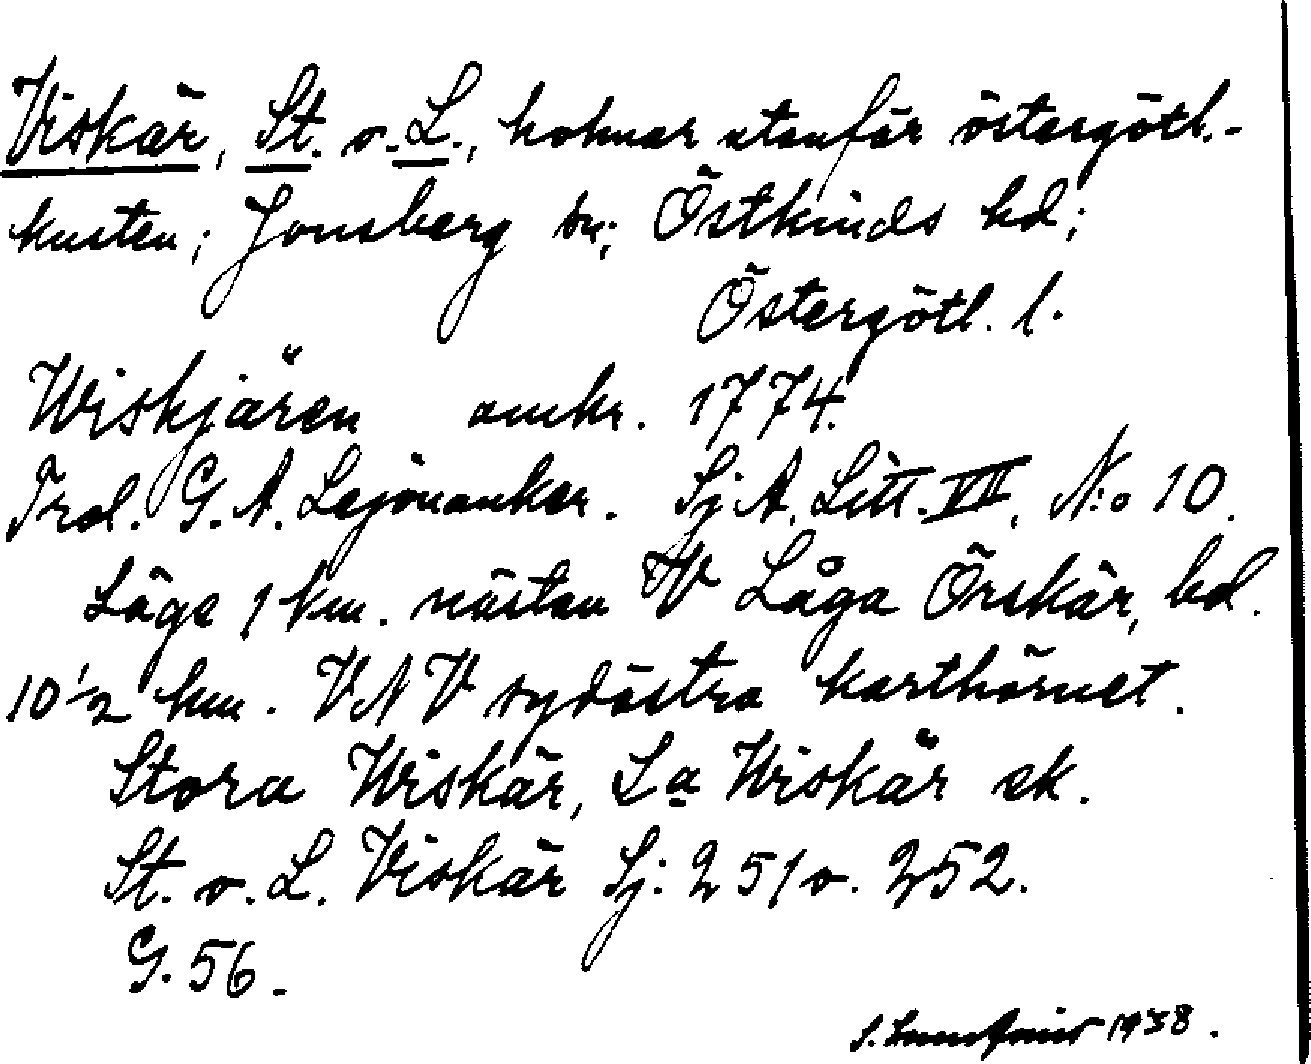 Viskär, St. o. L., holmar utanför östergötl.-
kusten; Jonsberg sn; Östkinds hd;
Östergötl. l.
Wiskjären omkr. 1774.
Trol. G. A. Lejonanker. Sj A, Litt. VII, N:o 10.
Läge 1 km. nästan V Låga Örskär, bd.
10 1/2 km. VNV sydöstra karthörnet.
Stora Wiskär, La Wiskär ek.
St. o. L. Viskär Sj: 251 o. 252.
G. 56.
1938.